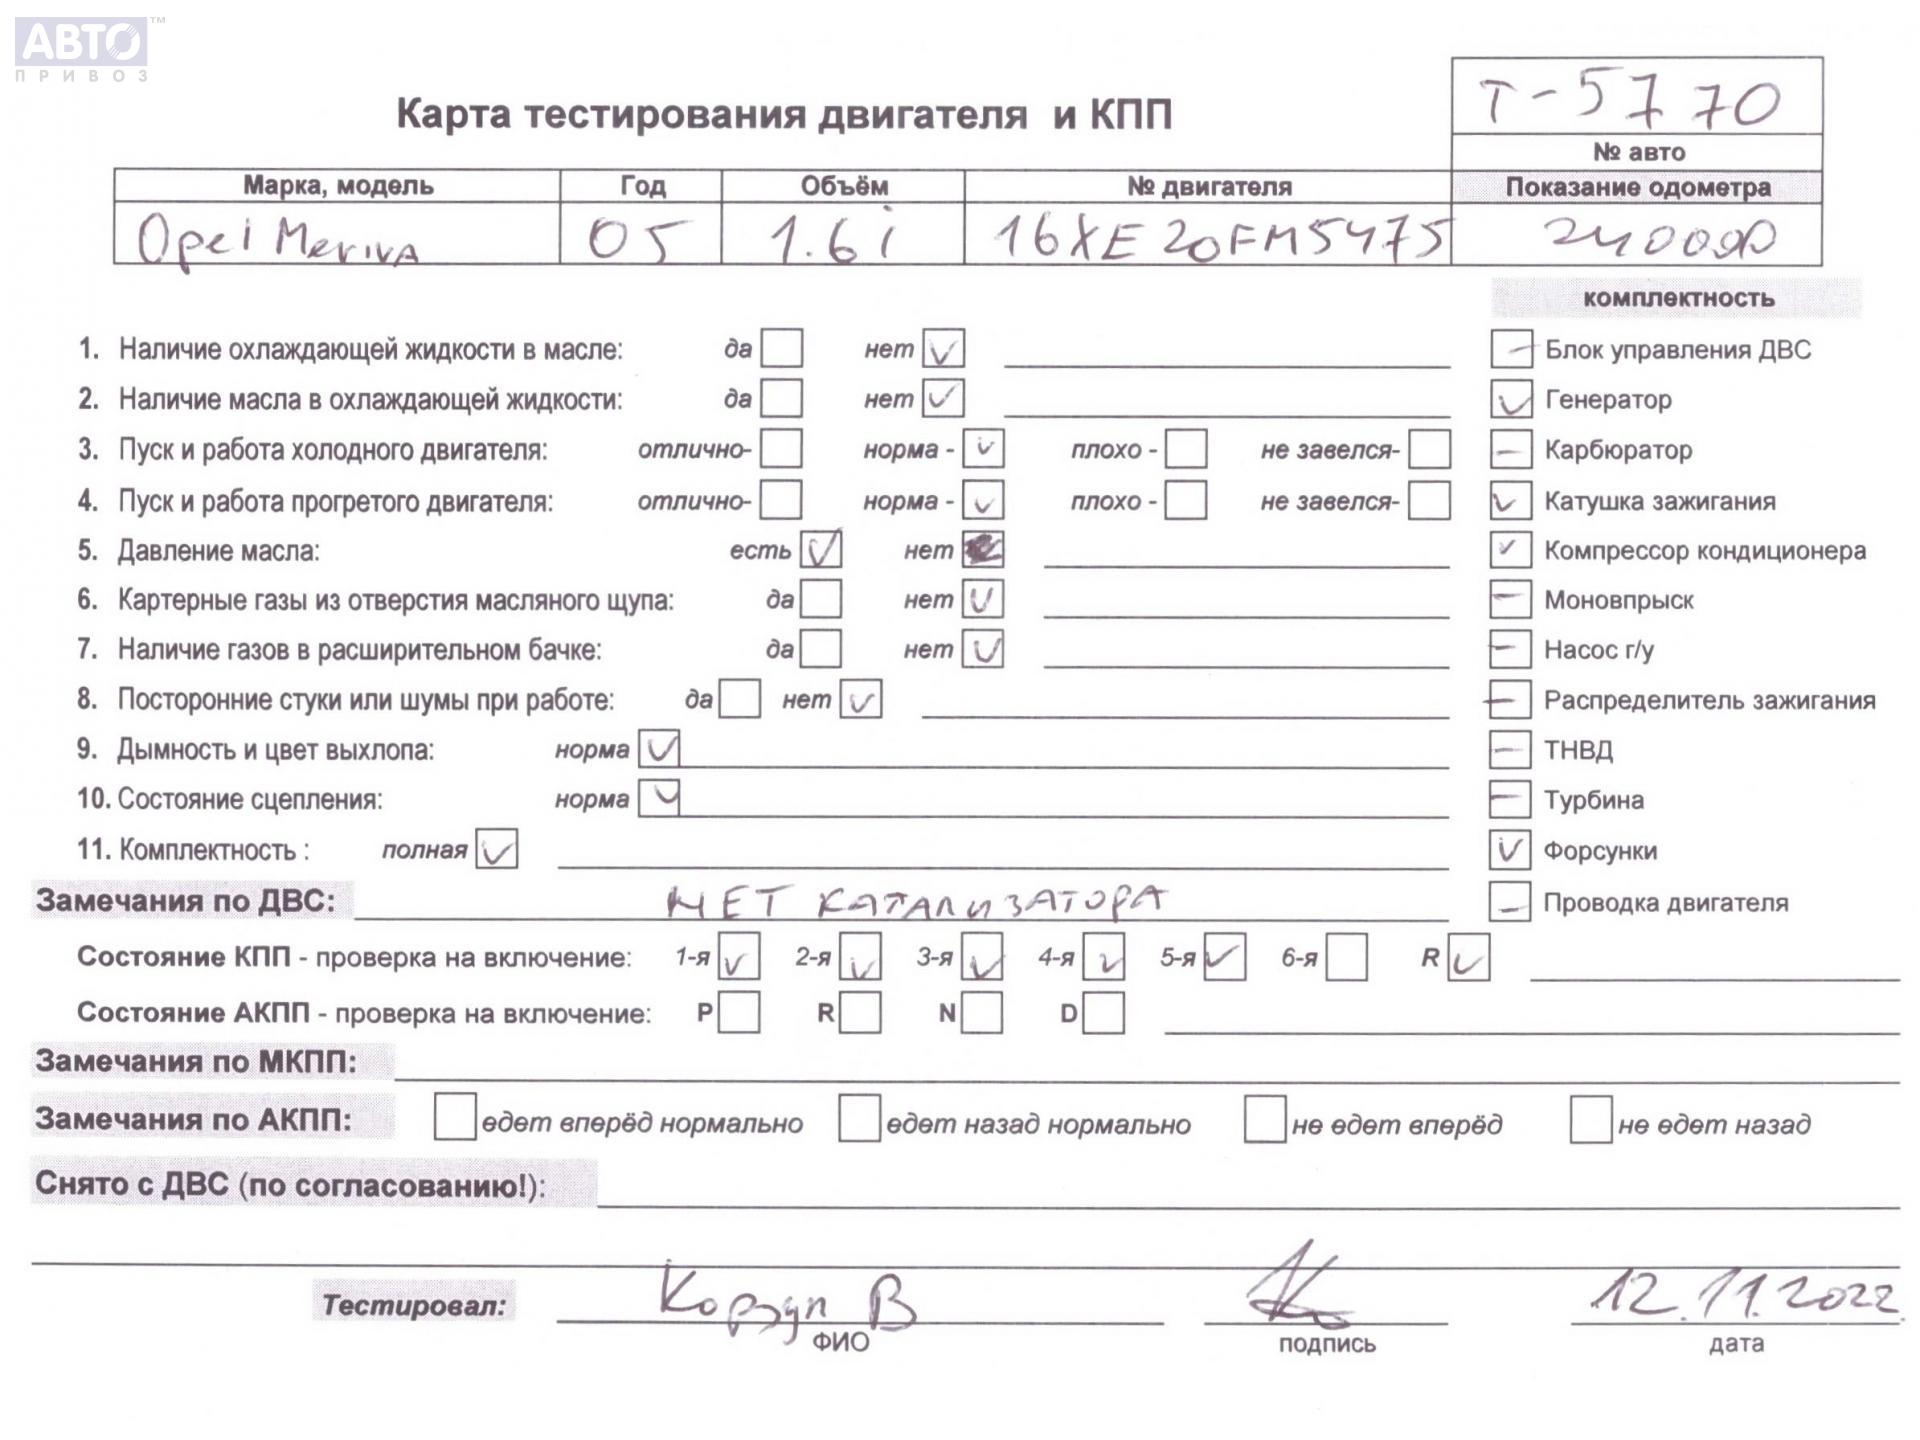 АВТО™
ПРИВОЗ
Т-5770
Карта тестирования двигателя и КПП
№ авто
Марка, модель Год Объём № двигателя Показание одометра
Opel Meriva 05 1.6i 16XE20FM5475 240000
комплектность
1. Наличие охлаждающей жидкости в масле: да нет Блок управления ДВС
2. Наличие масла в охлаждающей жидкости: да нет Генератор
3. Пуск и работа холодного двигателя: отлично- норма - плохо - не завелся- Карбюратор
4. Пуск и работа прогретого двигателя: отлично- норма - плохо - не завелся- Катушка зажигания
5. Давление масла: есть нет Компрессор кондиционера
6. Картерные газы из отверстия масляного щупа: да нет Моновпрыск
7. Наличие газов в расширительном бачке: да нет Насос г/у
8. Посторонние стуки или шумы при работе: да нет Распределитель зажигания
9. Дымность и цвет выхлопа: норма ТНВД
10. Состояние сцепления: норма Турбина
11. Комплектность : полная Форсунки
Замечания по ДВС: НЕТ КАТАЛИЗАТОРА Проводка двигателя
Состояние КПП - проверка на включение: 1-я 2-я 3-я 4-я 5-я 6-я R
Состояние АКПП - проверка на включение: P R N D
Замечания по МКПП:
Замечания по АКПП: едет вперёд нормально едет назад нормально не едет вперёд не едет назад
Снято с ДВС (по согласованию!):
Тестировал: Корзун В 12.11.2022
ФИО подпись дата